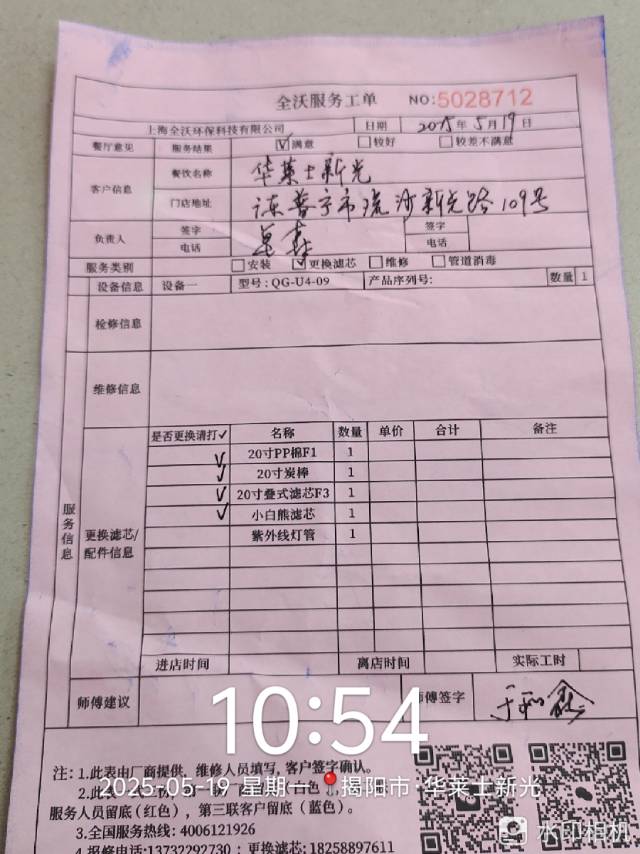 全沃服务工单 NO:5028712
上海全沃环保科技有限公司 日期 2015年5月19日
餐厅意见 服务结果 ☑满意 □较好 □较差不满意
客户信息 餐饮名称 华莱士新光
门店地址 普宁市流沙新光路109号
负责人 签字 签字
电话 电话
服务类别 □安装 ☑更换滤芯 □维修 □管道消毒
设备信息 设备一 型号:QG-U4-09 产品序列号: 数量 1
检修信息
维修信息
服务信息
更换滤芯/配件信息
是否更换请打✓ 名称 数量 单价 合计 备注
✓ 20寸PP棉F1 1
✓ 20寸炭棒 1
✓ 20寸叠式滤芯F3 1
✓ 小白熊滤芯 1
紫外线灯管 1
进店时间 离店时间 实际工时
师傅建议 师傅签字
10:54
注: 1.此表由厂商提供、维修人员填写, 客户签字确认。
2025-05-19 星期一 揭阳市·华莱士新光
服务人员留底(红色), 第三联客户留底(蓝色)。
3.全国服务热线: 4006121926
4.报修电话:13732292730 ; 更换滤芯: 18258897611
水印相机